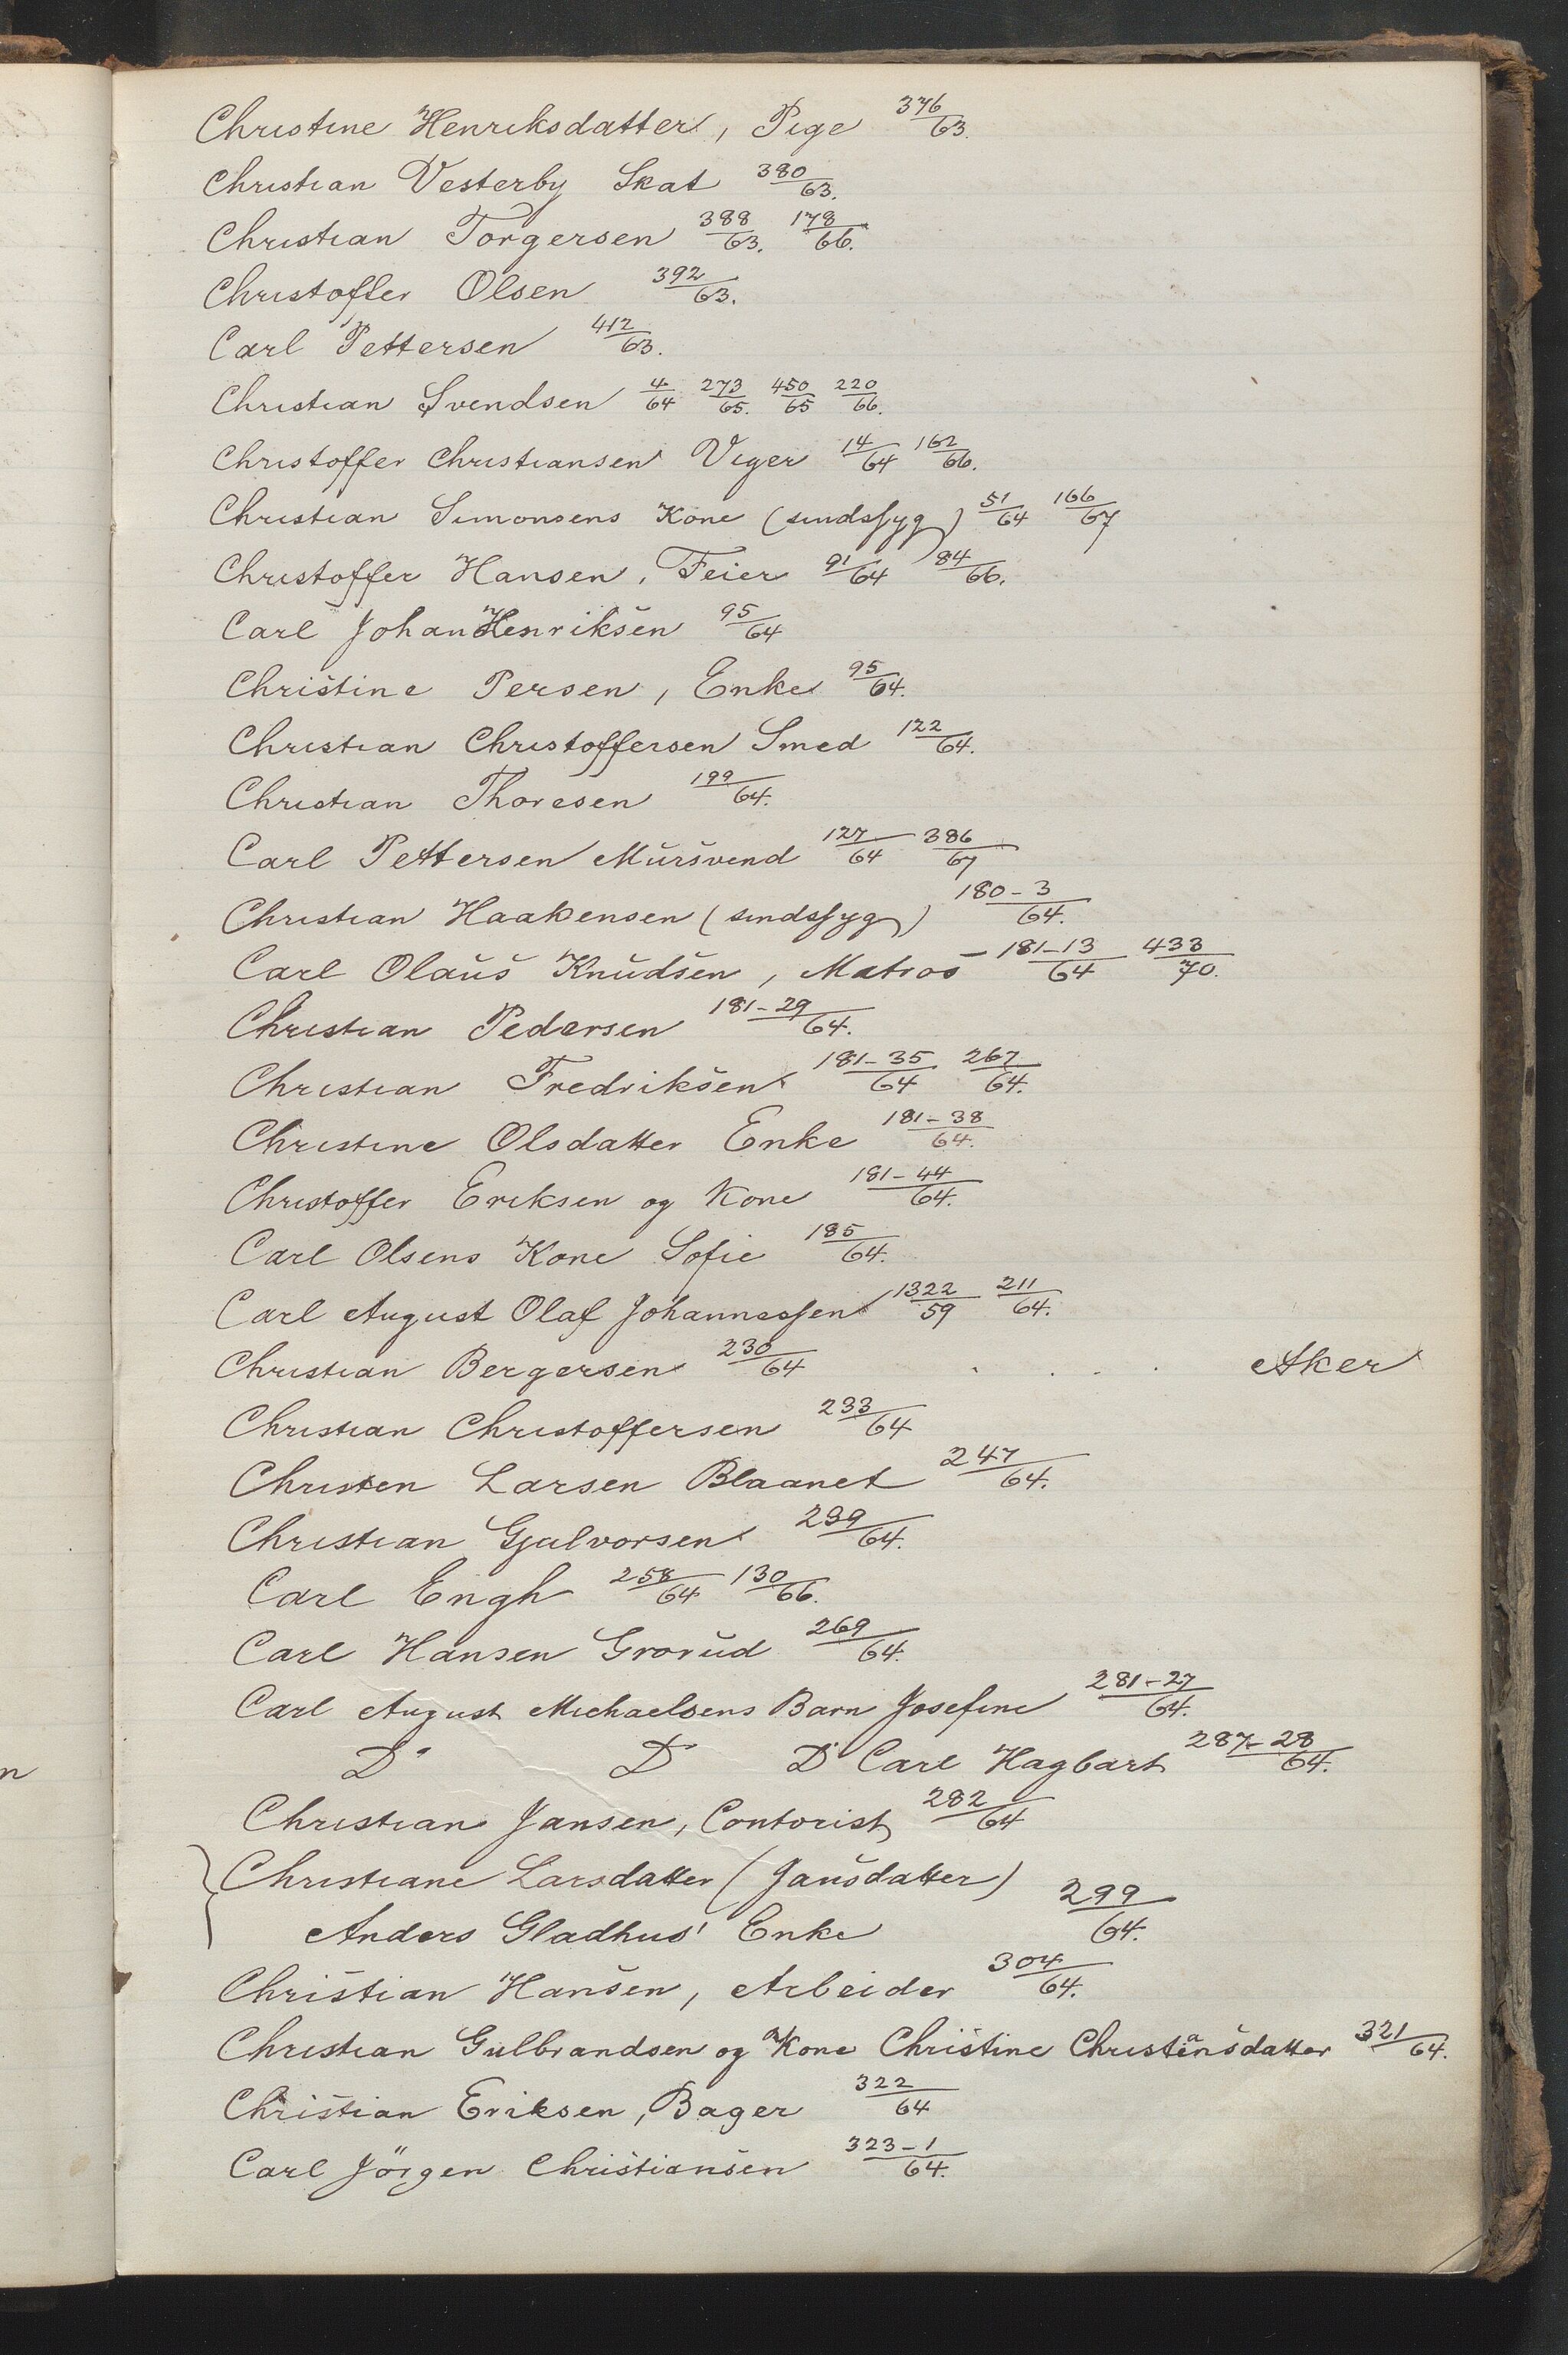 Christine Henriksdatter, Pige 376/63.
Christian Vesterby Skat 380/63.
Christian Torgersen 388/63. 178/66.
Christoffer Olsen 392/63.
Carl Pettersen 412/63.
Christian Svendsen 4/64 273/65. 450/65 220/66.
Christoffer Christiansen Viger 14/64 162/66.
Christian Simonsens Kone (sindssyg) 51/64 166/67
Christoffer Hansen, Feier 91/64 84/66.
Carl Johan Henriksen 95/64
Christine Persen, Enke 95/64.
Christian Christoffersen Smed 122/64.
Christian Thoresen 199/64.
Carl Pettersen Mursvend 127/64 386/67
Christian Haakensen (sindssyg) 180-3/64.
Carl Olaus Knudsen, Matros 181-13/64 433/70.
Christian Pedersen 181-29/64.
Christian Fredriksen 181-35/64 267/64.
Christine Olsdatter Enke 181-38/64.
Christoffer Eriksen og Kone 181-44/64.
Carl Olsens Kone Sofie 185/64.
Carl August Olaf Johannessen 1322/59 211/64.
Christian Bergersen 230/64 . . . . Aker
Christian Christoffersen 233/64
Christen Larsen Blaanet 247/64.
Christian Gjulvorsen 239/64.
Carl Engh 258/64 130/66.
Carl Hansen Grorud 269/64.
Carl August Michaelsens Barn Josefine 281-27/64.
Do Do Do Carl Hagbart 287-28/64.
Christian Jansen, Contorist 282/64
Christiane Larsdatter (Jansdatter)
Anders Gladhus' Enke 299/64.
Christian Hansen, Arbeider 304/64.
Christian Gulbrandsen og Kone Christine Christiansdatter 321/64.
Christian Eriksen, Bager 322/64
Carl Jörgen Christiansen 323-1/64.